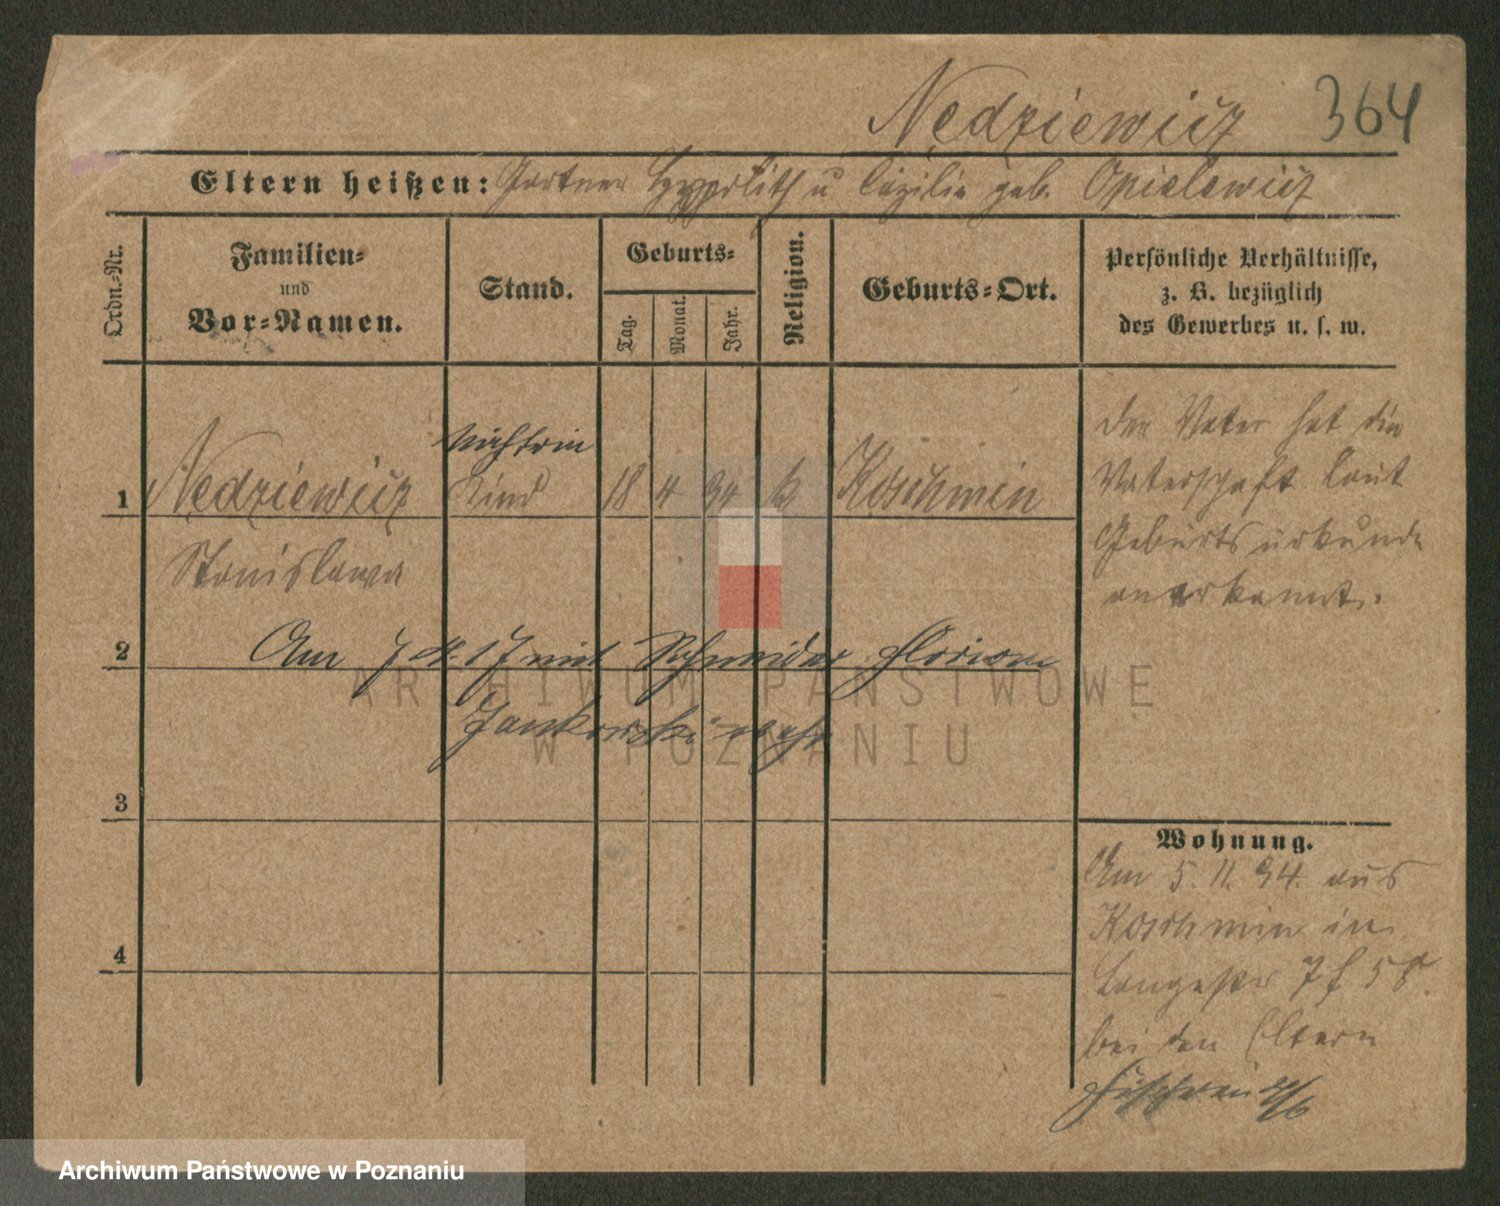 Nedziewicz 364
Eltern heißen: Gärtner Hypolith u Cäzilie geb. Opielewicz
Ordn.-Nr.
Familien-
und
Vor-Namen.
Stand.
Geburts-
Tag.
Monat.
Jahr.
Religion.
Geburts-Ort.
Persönliche Verhältnisse,
z. B. bezüglich
des Gewerbes u. s. w.
Der Vater hat die
Vaterschaft laut
Geburtsurkunde
anerkannt.
1 Nedziewicz Kind 18 4 94 k Koschmin
Stanislawa
2 Am 7 17 mit Schneider Florian
Jankowski
3
4
Wohnung.
Am 5. 11. 94. aus
Koschmin in
Langestr 7
bei den Eltern
Fischerei 4/6
ARCHIWUM PAŃSTWOWE
W POZNANIU
Archiwum Państwowe w Poznaniu